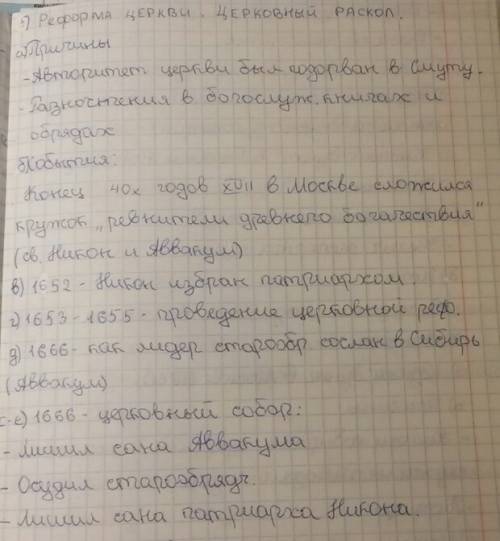 1) Реформа церкви. Церковный раскол.
а) Причины
- Авторитет церкви был подорван в Смуту.
- Разночтения в богослуж. книгах и
обрядах
б) События:
Конец 40х годов XVII в Москве сложился
кружок „ревнители древнего богачествия"
(св. Никон и Аввакум)
в) 1652 - Никон избран патриархом.
г) 1653 - 1655 - проведение церковной рефо.
д) 1666 - как лидер старообр. сослан в Сибирь
(Аввакум)
е) 1666 - церковный собор:
- Лишил сана Аввакума
- Осудил старообрядч.
- Лишил сана патриарха Никона.